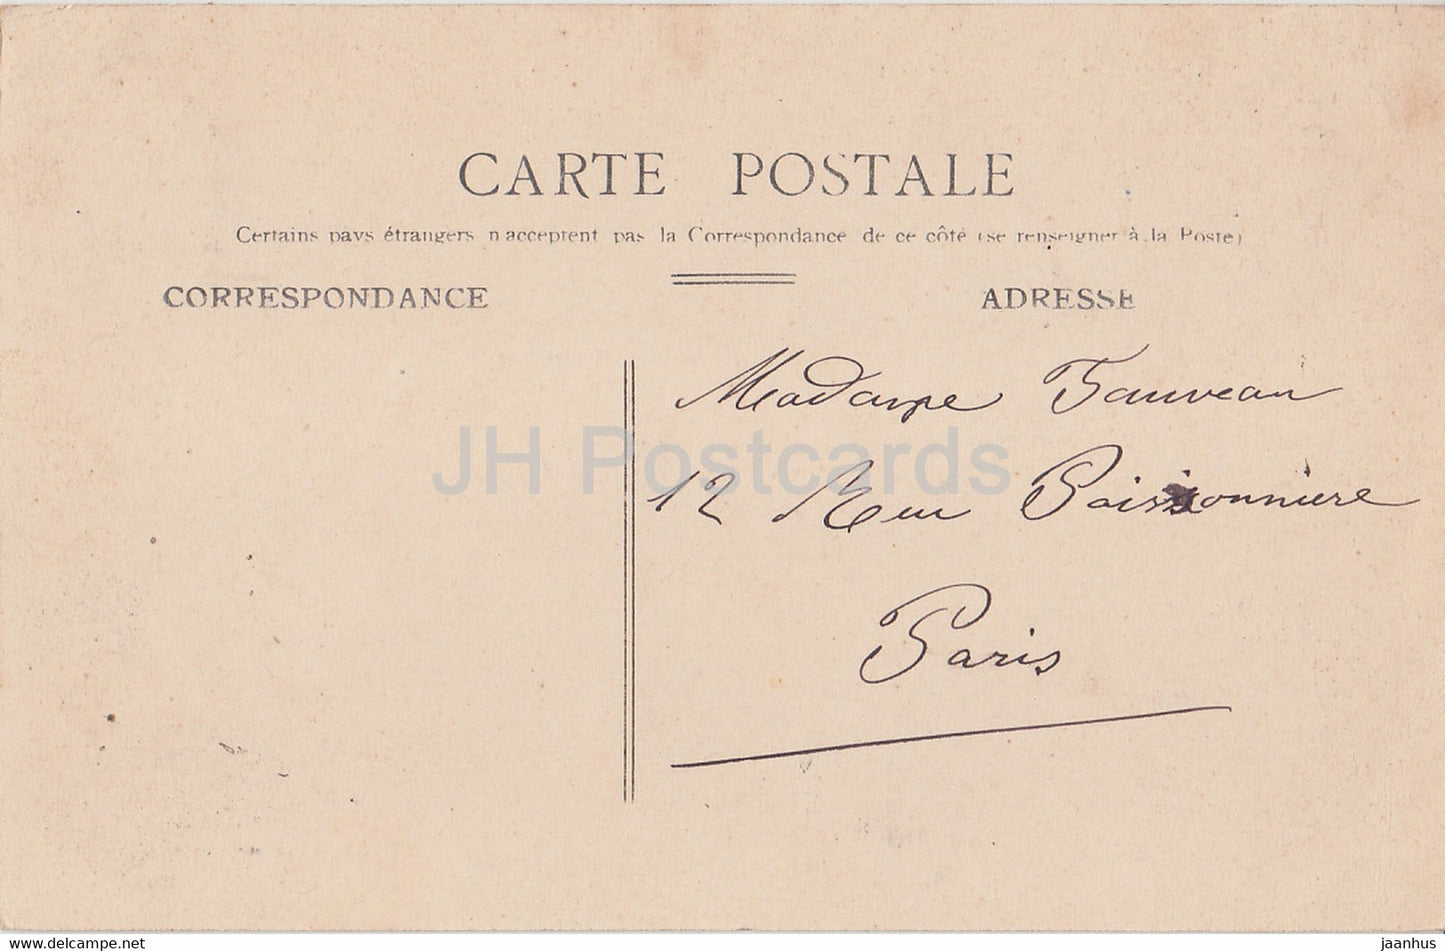 CARTE POSTALE
Certains pays étrangers n'acceptent pas la Correspondance de ce côté (se renseigner à la Poste)
CORRESPONDANCE
ADRESSE
Madame Fauveau
12 Rue Poissonniere
Paris
JH Postcards
www.delcampe.net
jaanhus